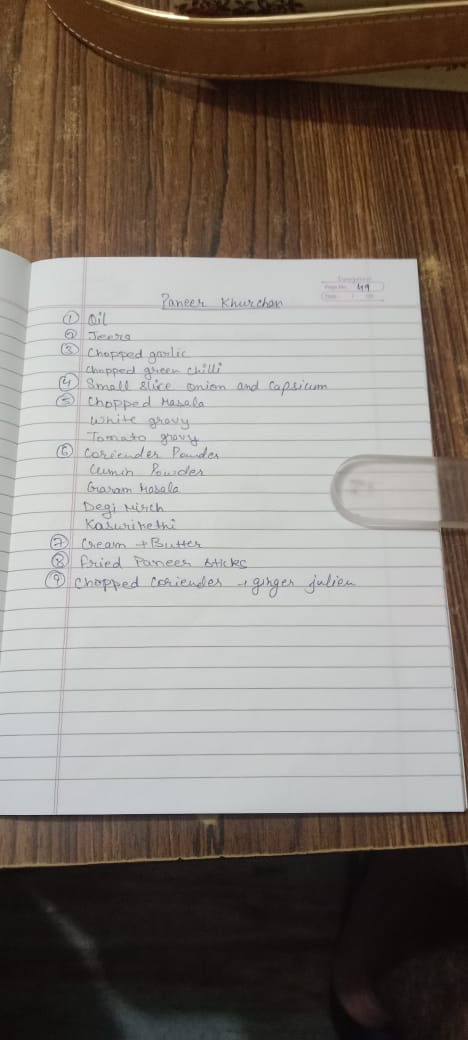 Page No. 49
Date
Paneer Khurchan
① Oil
② Jeera
③ Chopped garlic
Chopped green chilli
④ Small slice onion and Capsicum
⑤ Chopped Masala
White gravy
Tomato gravy
⑥ Coriender Powder
Cumin Powder
Garam Masala
Degi Mirch
Kasurimethi
⑦ Cream + Butter
⑧ Fried Paneer sticks
⑨ Chopped Coriender + ginger julien